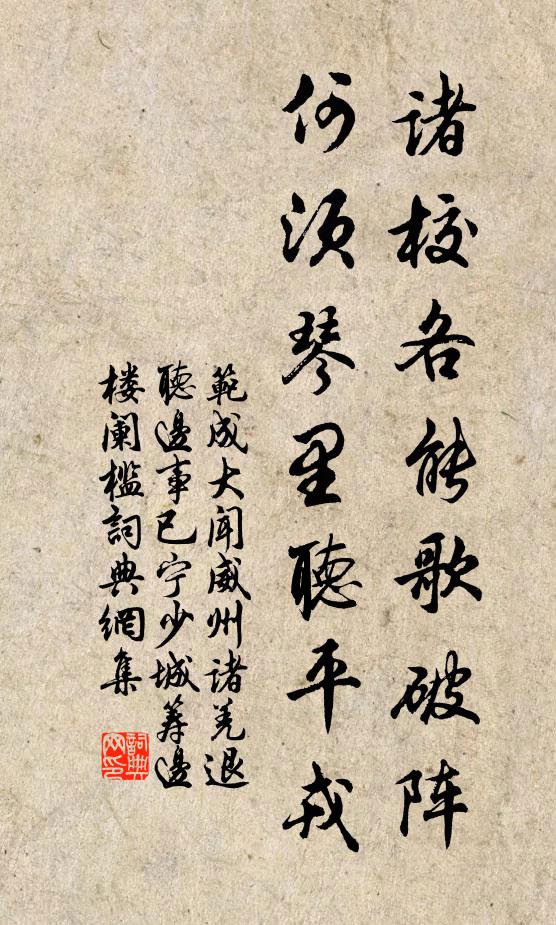 诸校各能歌破阵
何须琴里聽平戎
範成大闻威州诸羌退
聽邊事已宁少城筹邊
楼阑槛詞典網集
詞典网印